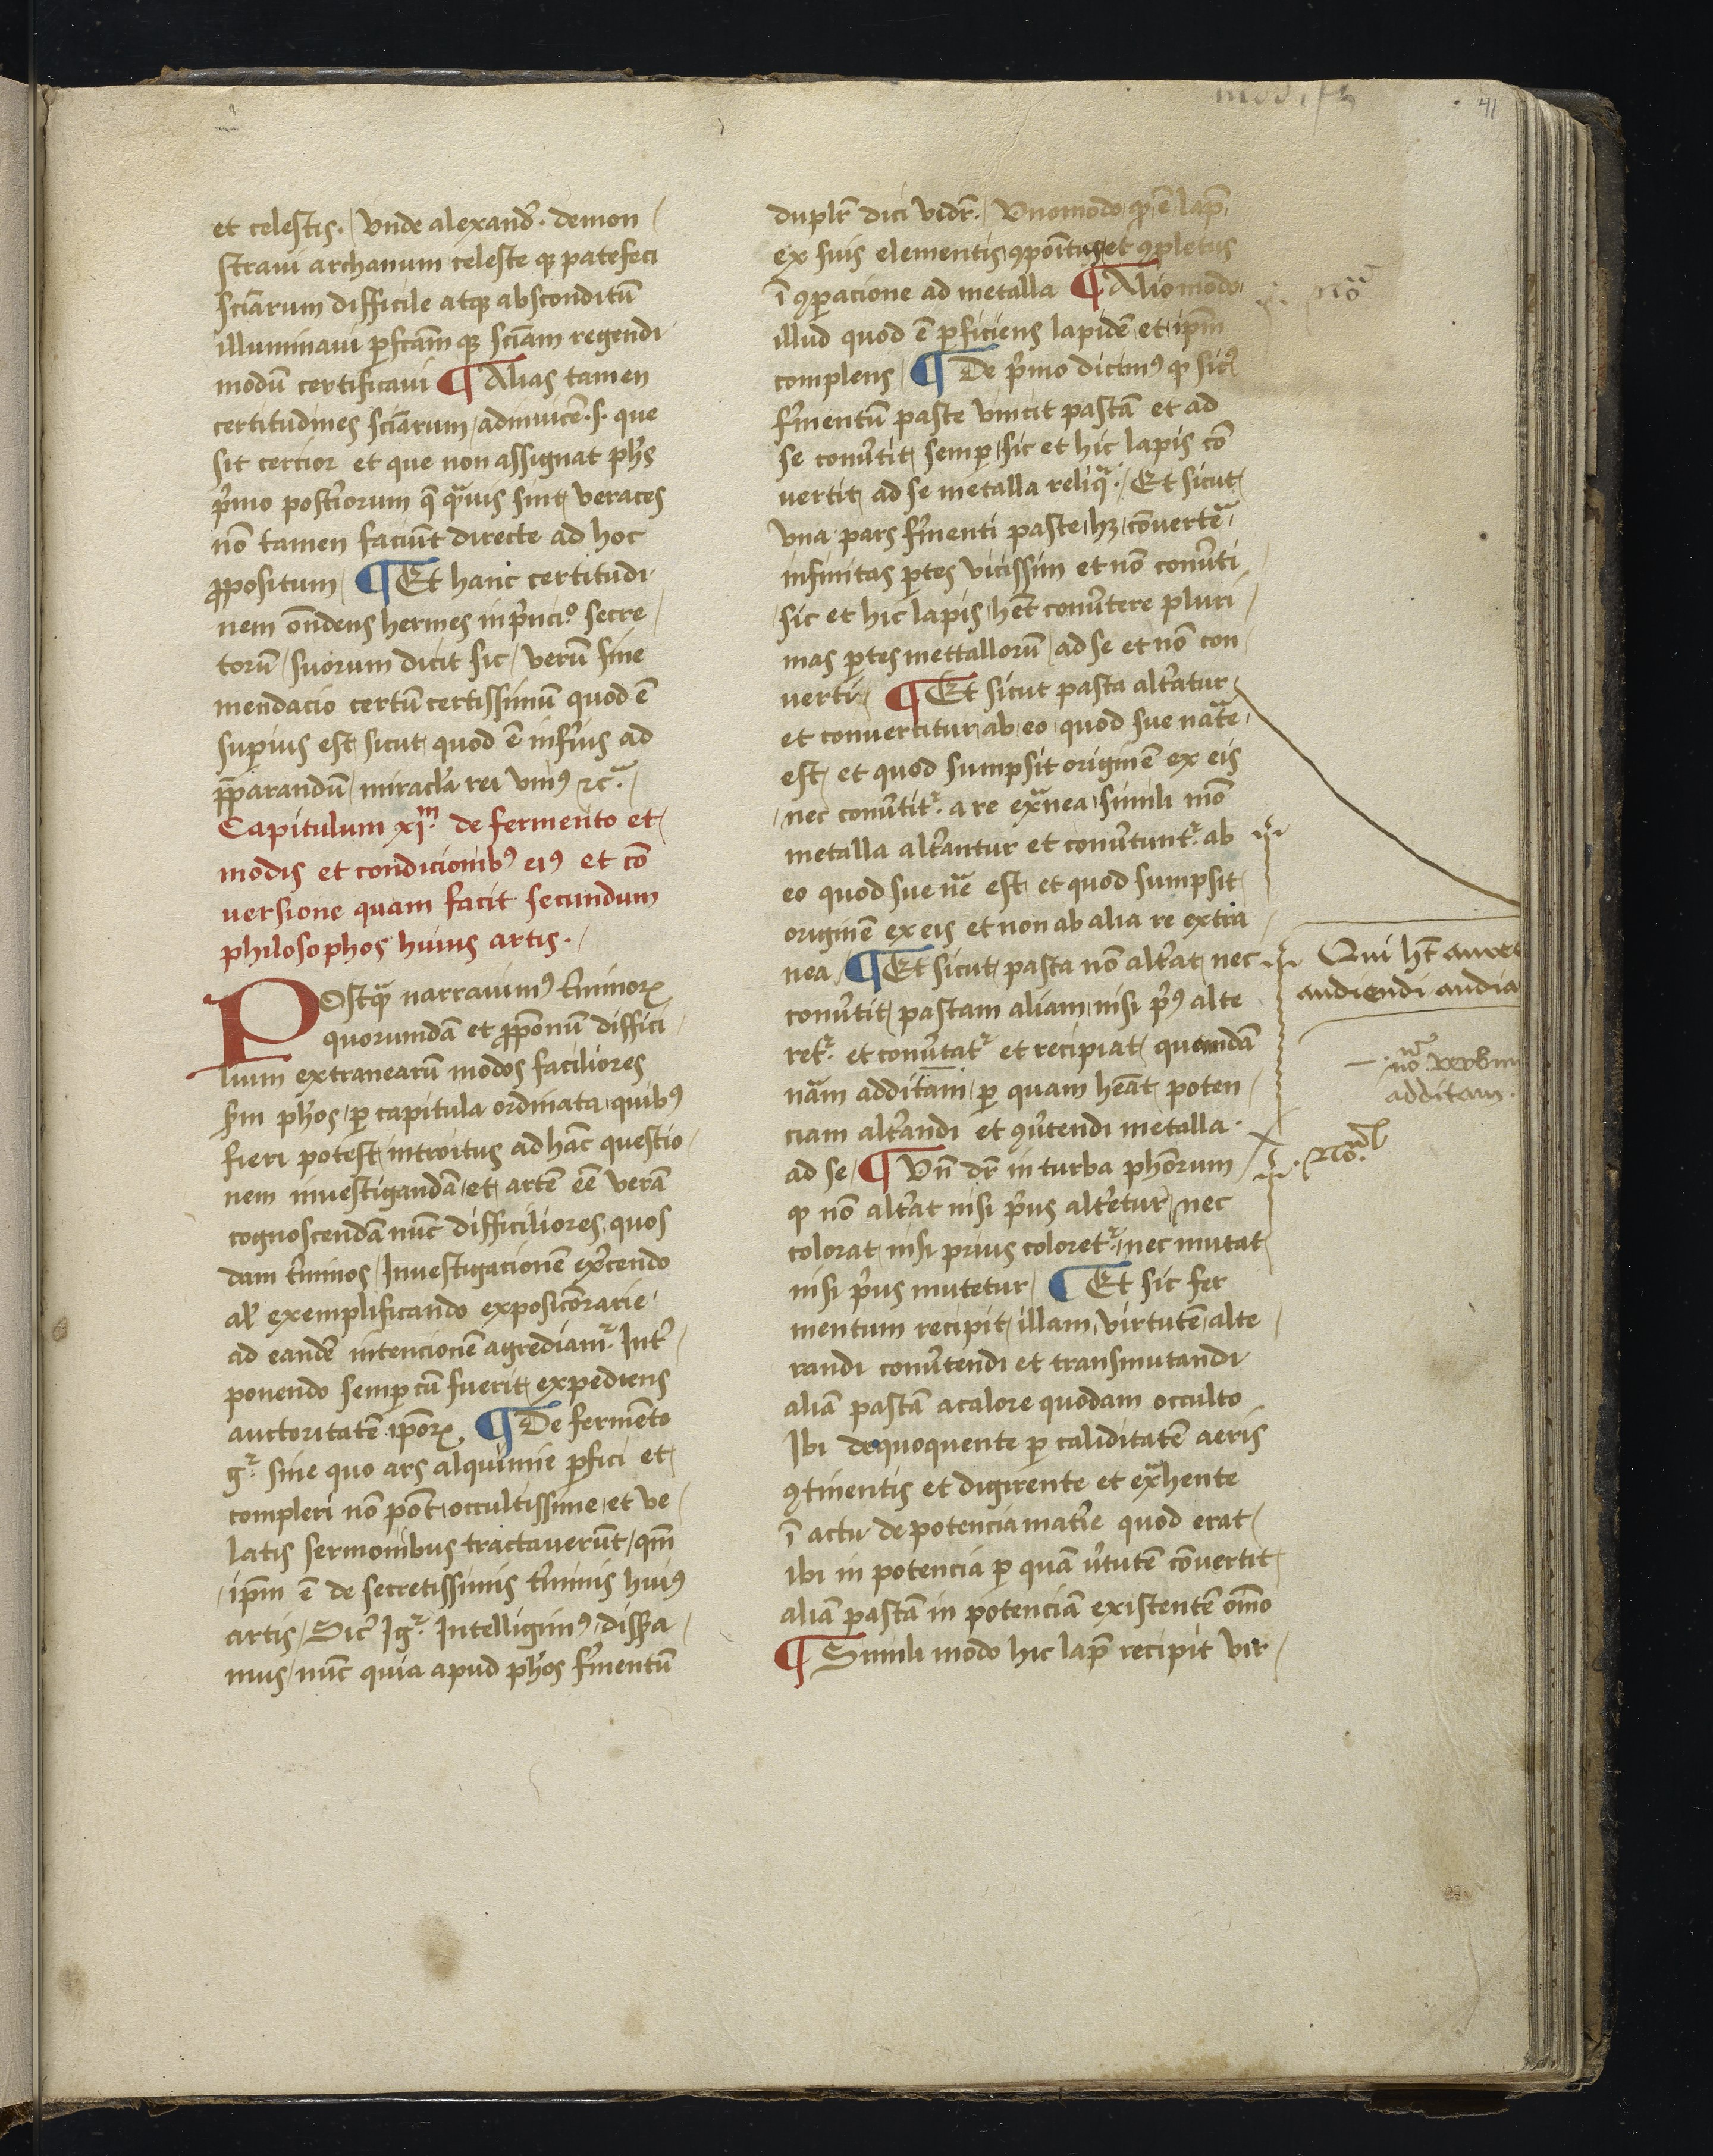 41
et celestis. / Vnde alexandr̃. demon /
straui archanum celeste qꝫ patefeci
sciar̃um difficile atqꝫ absconditũ
illuminaui ꝑfctãm qꝫ sciãm regendi
modũ certificaui ¶ Alias tamen
certitudines sciãrum / adinuicẽ .s. que
sit cercior et que non assignat ph̃s
p̃mo posterĩorum q̃ qᷓuis sint veraces
nõ tamen faciũt directe ad hoc
ꝓpositum / ¶ Et hanc certitudi
nem oñdens hermes in p̃ncio̊ secre /
torũ / suorum dicit sic / verũ sine
mendacio certũ certissimũ quod ẽ
suꝑius est sicut quod ẽ infẽius ad
p̃parandũ / miracl̃a rei vniꝰ ⁊cᷓ. /
Capitulum xjᵐ. de fermento et
modis et condicionibꝰ eiꝰ et cõ
uersione quam facit secundum
philosophos huius artis. /
Postqᷓ narrauimꝰ t̃minoꝝ
quorumdã et ꝓpõnũ diffici /
lium extranearũ modos faciliores
s̃m ph̃os / ꝑ capitula ordinata quibꝰ
fieri potest introitus ad hãc questio /
nem inuestigandã et artẽ eẽ verã
cognoscendã nũc difficiliores quos
dam t̃minos / Inuestigacionẽ ex̃cendo
al̃ exemplificando exposicõrarie
ad eandẽ intencionẽ agrediamᷣ. Int̃ /
ponendo semꝑ cũ fuerit expediens
auctoritatẽ ip̃oꝝ. ¶ De fermẽto
gᷣ. sine quo ars alquimie ꝑfici et
compleri nõ põt occultissime et ve /
latis sermonibus tractauerũt / qm̃
ip̃m ẽ de secretissimis t̃minis huiꝰ
artis / Sic̃ Igᷣ. Intelligimꝰ / dissꝑa /
mus / nũc quia apud ph̃os f̃mentũ
duplr̃ dici vidr̃. / Vnomodo ꝙ ẽ lap̃.
ex suis elementis ꝯpoĩtus et ꝯpletus
ĩ ꝯꝑacione ad metalla ¶ Aliomodo
illud quod ẽ ꝑficiens lapidẽ et ip̃m
complens / ¶ De p̃mo dicimꝰ ꝙ sic̃
f̃mentũ paste vincit pastã et ad
se conũtit semꝑ / sic et hic lapis cõ
uertit ad se metalla reliqᷓ. / Et sicut
vna pars f̃menti paste hꝫ cõuertẽ
infinitas ꝑtes vicissim et nõ conũti.
sic et hic lapis hẽt conũtere pluri /
mas ꝑtes mettallorũ ad se et nõ con
uerti / ¶ Et sicut pasta alt̃atur
et conuertitur ab eo quod sue natᷓe
est et quod sumpsit originẽ ex eis
nec conũtitᷣ. a re exᷓnea / simili mõ
metalla alt̃antur et conũtuntᷣ. ab
eo quod sue nẽ est et quod sumpsit
originẽ ex eis et non ab alia re extra
nea / ¶ Et sicut pasta nõ alt̃at nec
conũtit pastam aliam / nisi p̃ꝰ alte
retᷣ. et conũtatᷣ et recipiat quamdã
nãm additam̃ ꝑ quam heãt poten /
ciam alt̃andi et ꝯũtendi metalla.
ad se / ¶ Vñ dr̃ in turba phõrum
ꝙ nõ alt̃at nisi p̃us alt̃etur / nec
colorat nisi prius coloretᷣ. / nec mutat
nisi p̃us mutetur / ¶ Et sic fer
mentum recipit illam virtutẽ alte /
randi conũtendi et transmutandi
aliã pastã a calore quodam occulto
Ibi dequoquente ꝑ caliditatẽ aeris
ꝯtinentis et digirente et exᷓhente
ĩ actu de potencia mat̃ie quod erat
ibi in potencia ꝑ quã ṽtutẽ cõuertit
aliã pastã in potenciã existentẽ om̃o
¶ Simili modo hic lap̃ recipit vir /
noᷓ
Qui hr̃t aures
audiendi audia
noᷓ verbum
additam.
Noᷓ.